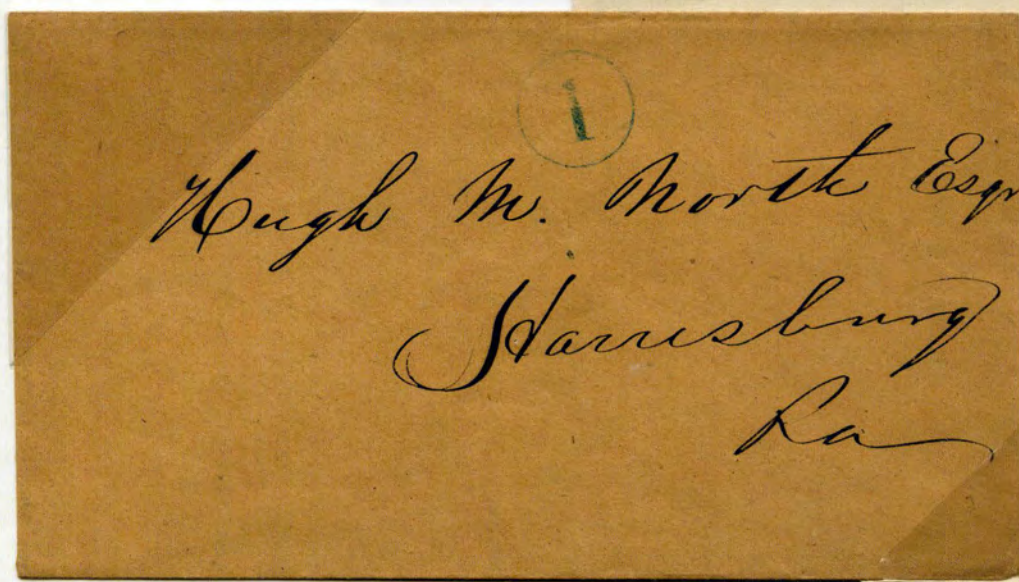 1
Hugh M. North Esqr
Harrisburg
Pa